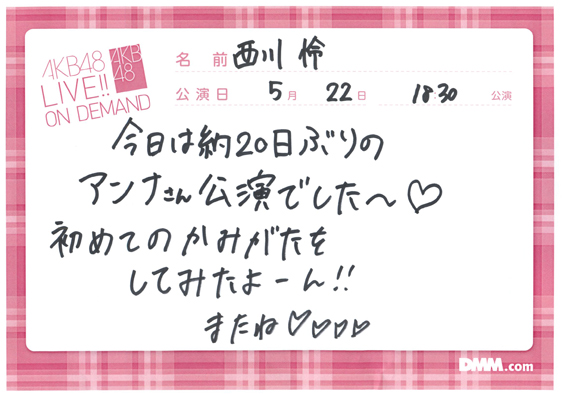 AKB48
LIVE!!
ON DEMAND
AKB
48
名前 西川 怜
公演日 5月 22日 18:30 公演
今日は約20日ぶりの
アンナさん公演でした〜♡
初めてのかみがたを
してみたよーん!!
またね♡♡♡♡
DMM.com